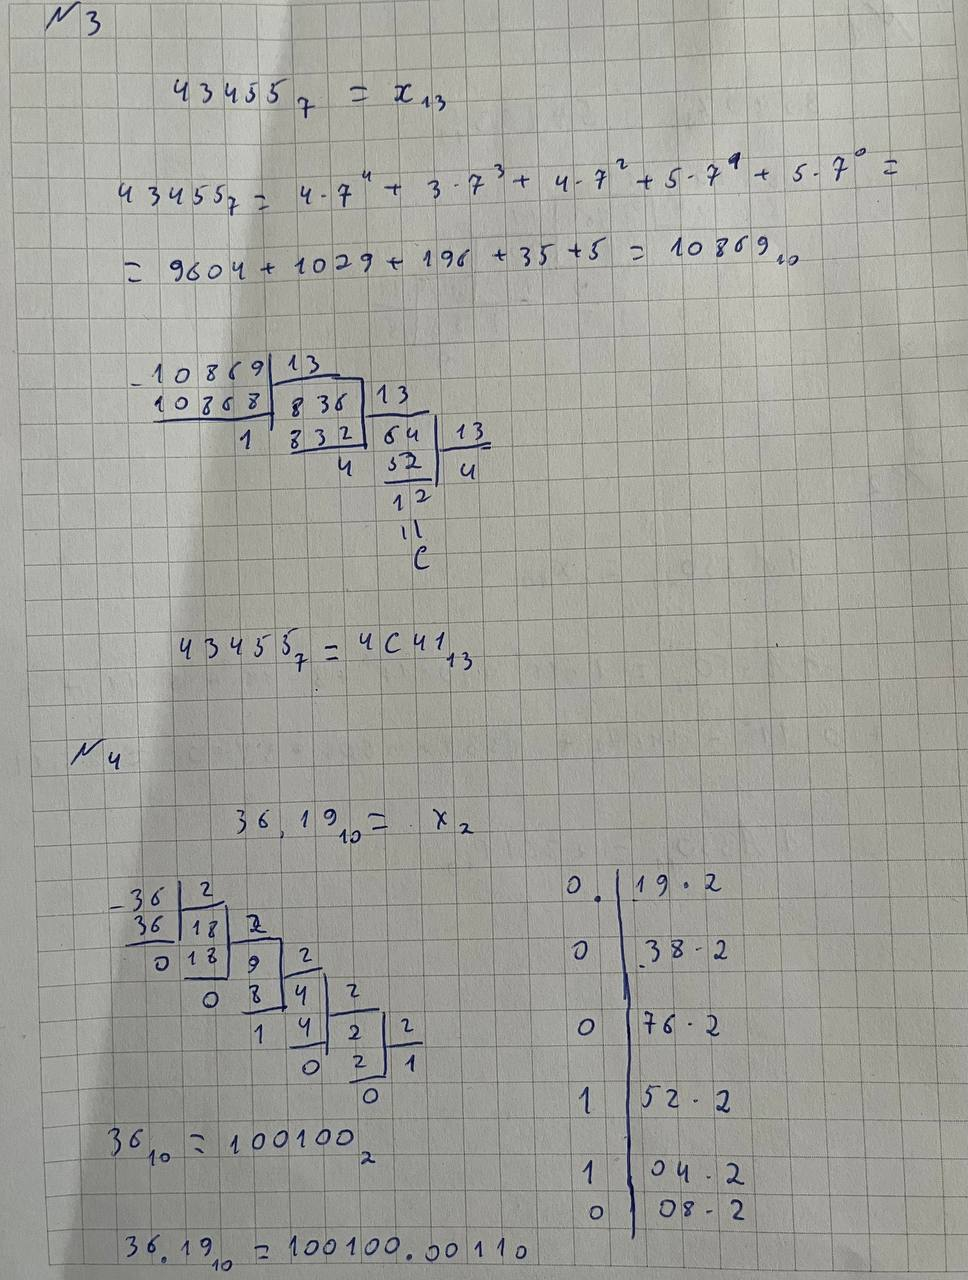 N3
43455₇ = x₁₃
43455₇ = 4·7⁴ + 3·7³ + 4·7² + 5·7¹ + 5·7⁰ =
= 9604 + 1029 + 196 + 35 + 5 = 10869₁₀
-10869 | 13
10868 | 836 | 13
1 832 | 64 | 13
4 52 | 4
12
||
C
43455₇ = 4C41₁₃
N4
36,19₁₀ = x₂
-36 | 2
36 | 18 | 2
0 18 | 9 | 2
0 8 | 4 | 2
1 4 | 2 | 2
0 2 | 1
0
36₁₀ = 100100₂
0. | 19·2
0 | 38·2
0 | 76·2
1 | 52·2
1 | 04·2
0 | 08·2
36.19₁₀ = 100100.00110